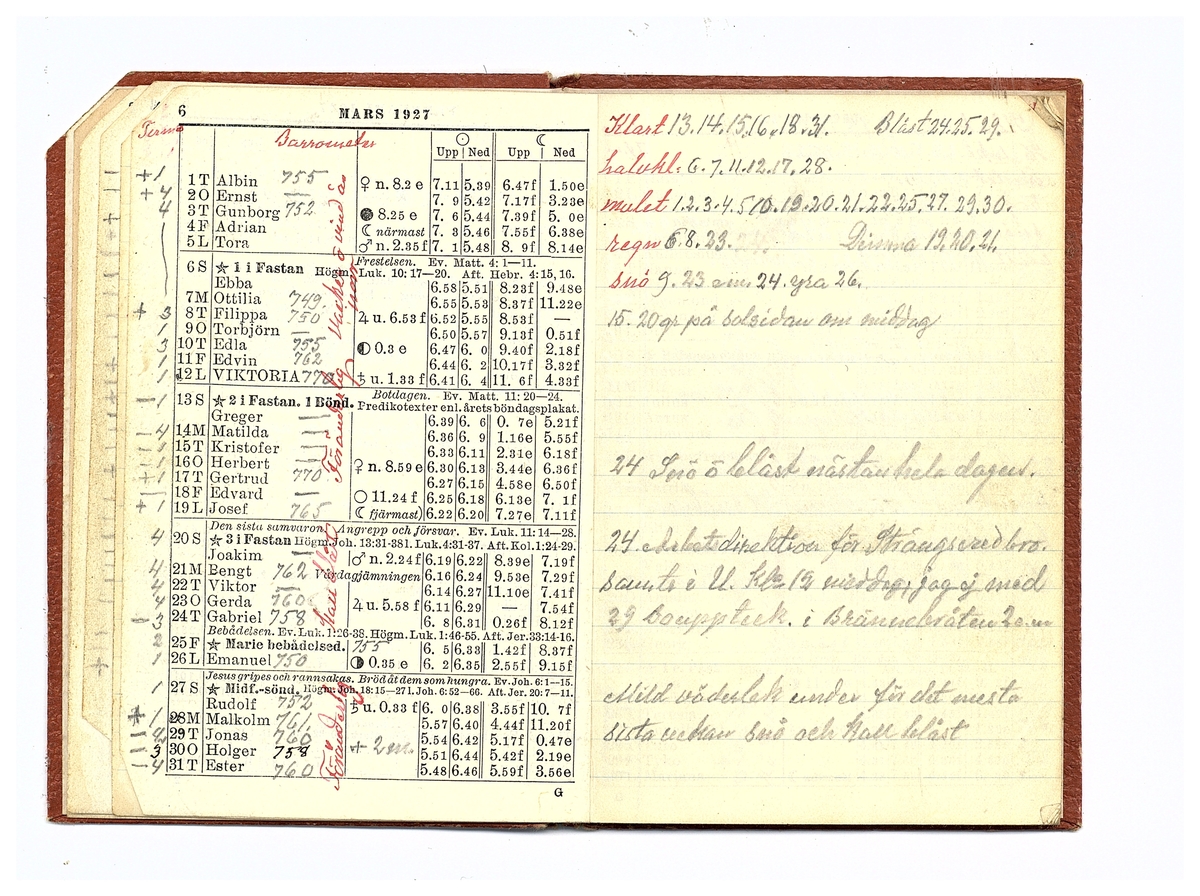 6 MARS 1927
Term
Barrometer
Upp Ned Upp Ned
+1 1 T Albin 755 ♀ n. 8.2 e 7.11 5.39 6.47f 1.50e
+4 2 O Ernst — 7. 9 5.42 7.17f 3.23e
4 3 T Gunborg 752 ● 8.25 e 7. 6 5.44 7.39f 5. 0e
4 F Adrian ☾ närmast 7. 3 5.46 7.55f 6.38e
5 L Tora ♂ n. 2.35 f 7. 1 5.48 8. 9f 8.14e
Frestelsen. Ev. Matt. 4: 1—11.
6 S ★ 1 i Fastan Högm. Luk. 10: 17—20. Aft. Hebr. 4: 15, 16.
Ebba 6.58 5.51 8.23f 9.48e
7 M Ottilia 749. 6.55 5.53 8.37f 11.22e
+ 3 8 T Filippa 750 ♃ u. 6.53 f 6.52 5.55 8.53f —
1 9 O Torbjörn — 6.50 5.57 9.13f 0.51f
3 10 T Edla 755 ◐ 0.3 e 6.47 6. 0 9.40f 2.18f
1 11 F Edvin 762 6.44 6. 2 10.17f 3.32f
1 12 L VIKTORIA 770 ♄ u. 1.33 f 6.41 6. 4 11. 6f 4.33f
Botdagen. Ev. Matt. 11: 20—24.
—1 13 S ★ 2 i Fastan. 1 Bönd. Predikotexter enl. årets böndagsplakat.
Greger — 6.39 6. 6 0. 7e 5.21f
—4 14 M Matilda — 6.36 6. 9 1.16e 5.55f
1 15 T Kristofer — 6.33 6.11 2.31e 6.18f
1 16 O Herbert — ♀ n. 8.59 e 6.30 6.13 3.44e 6.36f
+1 17 T Gertrud 770 6.27 6.15 4.58e 6.50f
1 18 F Edvard — ○ 11.24 f 6.25 6.18 6.13e 7. 1f
+1 19 L Josef 765 ☾ fjärmast 6.22 6.20 7.27e 7.11f
Den sista samvaron. Angrepp och försvar. Ev. Luk. 11: 14—28.
4 20 S ★ 3 i Fastan Högm. Joh. 13:31-38 l. Luk. 4:31-37. Aft. Kol. 1:24-29.
Joakim — ♂ n. 2.24 f 6.19 6.22 8.39e 7.19f
4 21 M Bengt 762 Vårdagjämningen 6.16 6.24 9.53e 7.29f
4 22 T Viktor — 6.14 6.27 11.10e 7.41f
4 23 O Gerda 760 ♃ u. 5.58 f 6.11 6.29 — 7.54f
—3 24 T Gabriel 758 6. 8 6.31 0.26f 8.12f
Bebådelsen. Ev. Luk. 1:26-38. Högm. Luk. 1:46-55. Aft. Jer. 33:14-16.
2 25 F ★ Marie bebådelsed. 755 6. 5 6.33 1.42f 8.37f
1 26 L Emanuel 750 ◐ 0.35 e 6. 2 6.35 2.55f 9.15f
Jesus gripes och rannsakas. Bröd åt dem som hungra. Ev. Joh. 6: 1—15.
1 27 S ★ Midf.-sönd. Högm. Joh. 18: 15—27 l. Joh. 6: 52—66. Aft. Jer. 20: 7—11.
Rudolf 752 ♄ u. 0.33 f 6. 0 6.38 3.55f 10. 7f
+1 28 M Malkolm 761 5.57 6.40 4.44f 11.20f
—2 29 T Jonas 760 5.54 6.42 5.17f 0.47e
—3 30 O Holger 758 + 2 5.51 6.44 5.42f 2.19e
—4 31 T Ester 760 5.48 6.46 5.59f 3.56e
G
Vacker ö vind
Föränderlig
Kall blåst
Föränderlig
Klart 13.14.15.16.18.31. Blåst 24.25.29.
halvkl: 6.7.11.12.17.28.
mulet 1.2.3.4.5.10.19.20.21.22.25.27.29.30.
regn 6.8.23. Dimma 19.20.21.
snö 9.23 24. yra 26.
15-20 gr på solsidan om middag
24 Snö ö blåst nästan hela dagen.
24. Arbetsdirektion för Strängseredbro.
samt i U. Kl 12 middag, jag ej med
29 Bouppteck. i Brännebråten
Mild väderlek under för det mesta
sista veckan snö och kall blåst